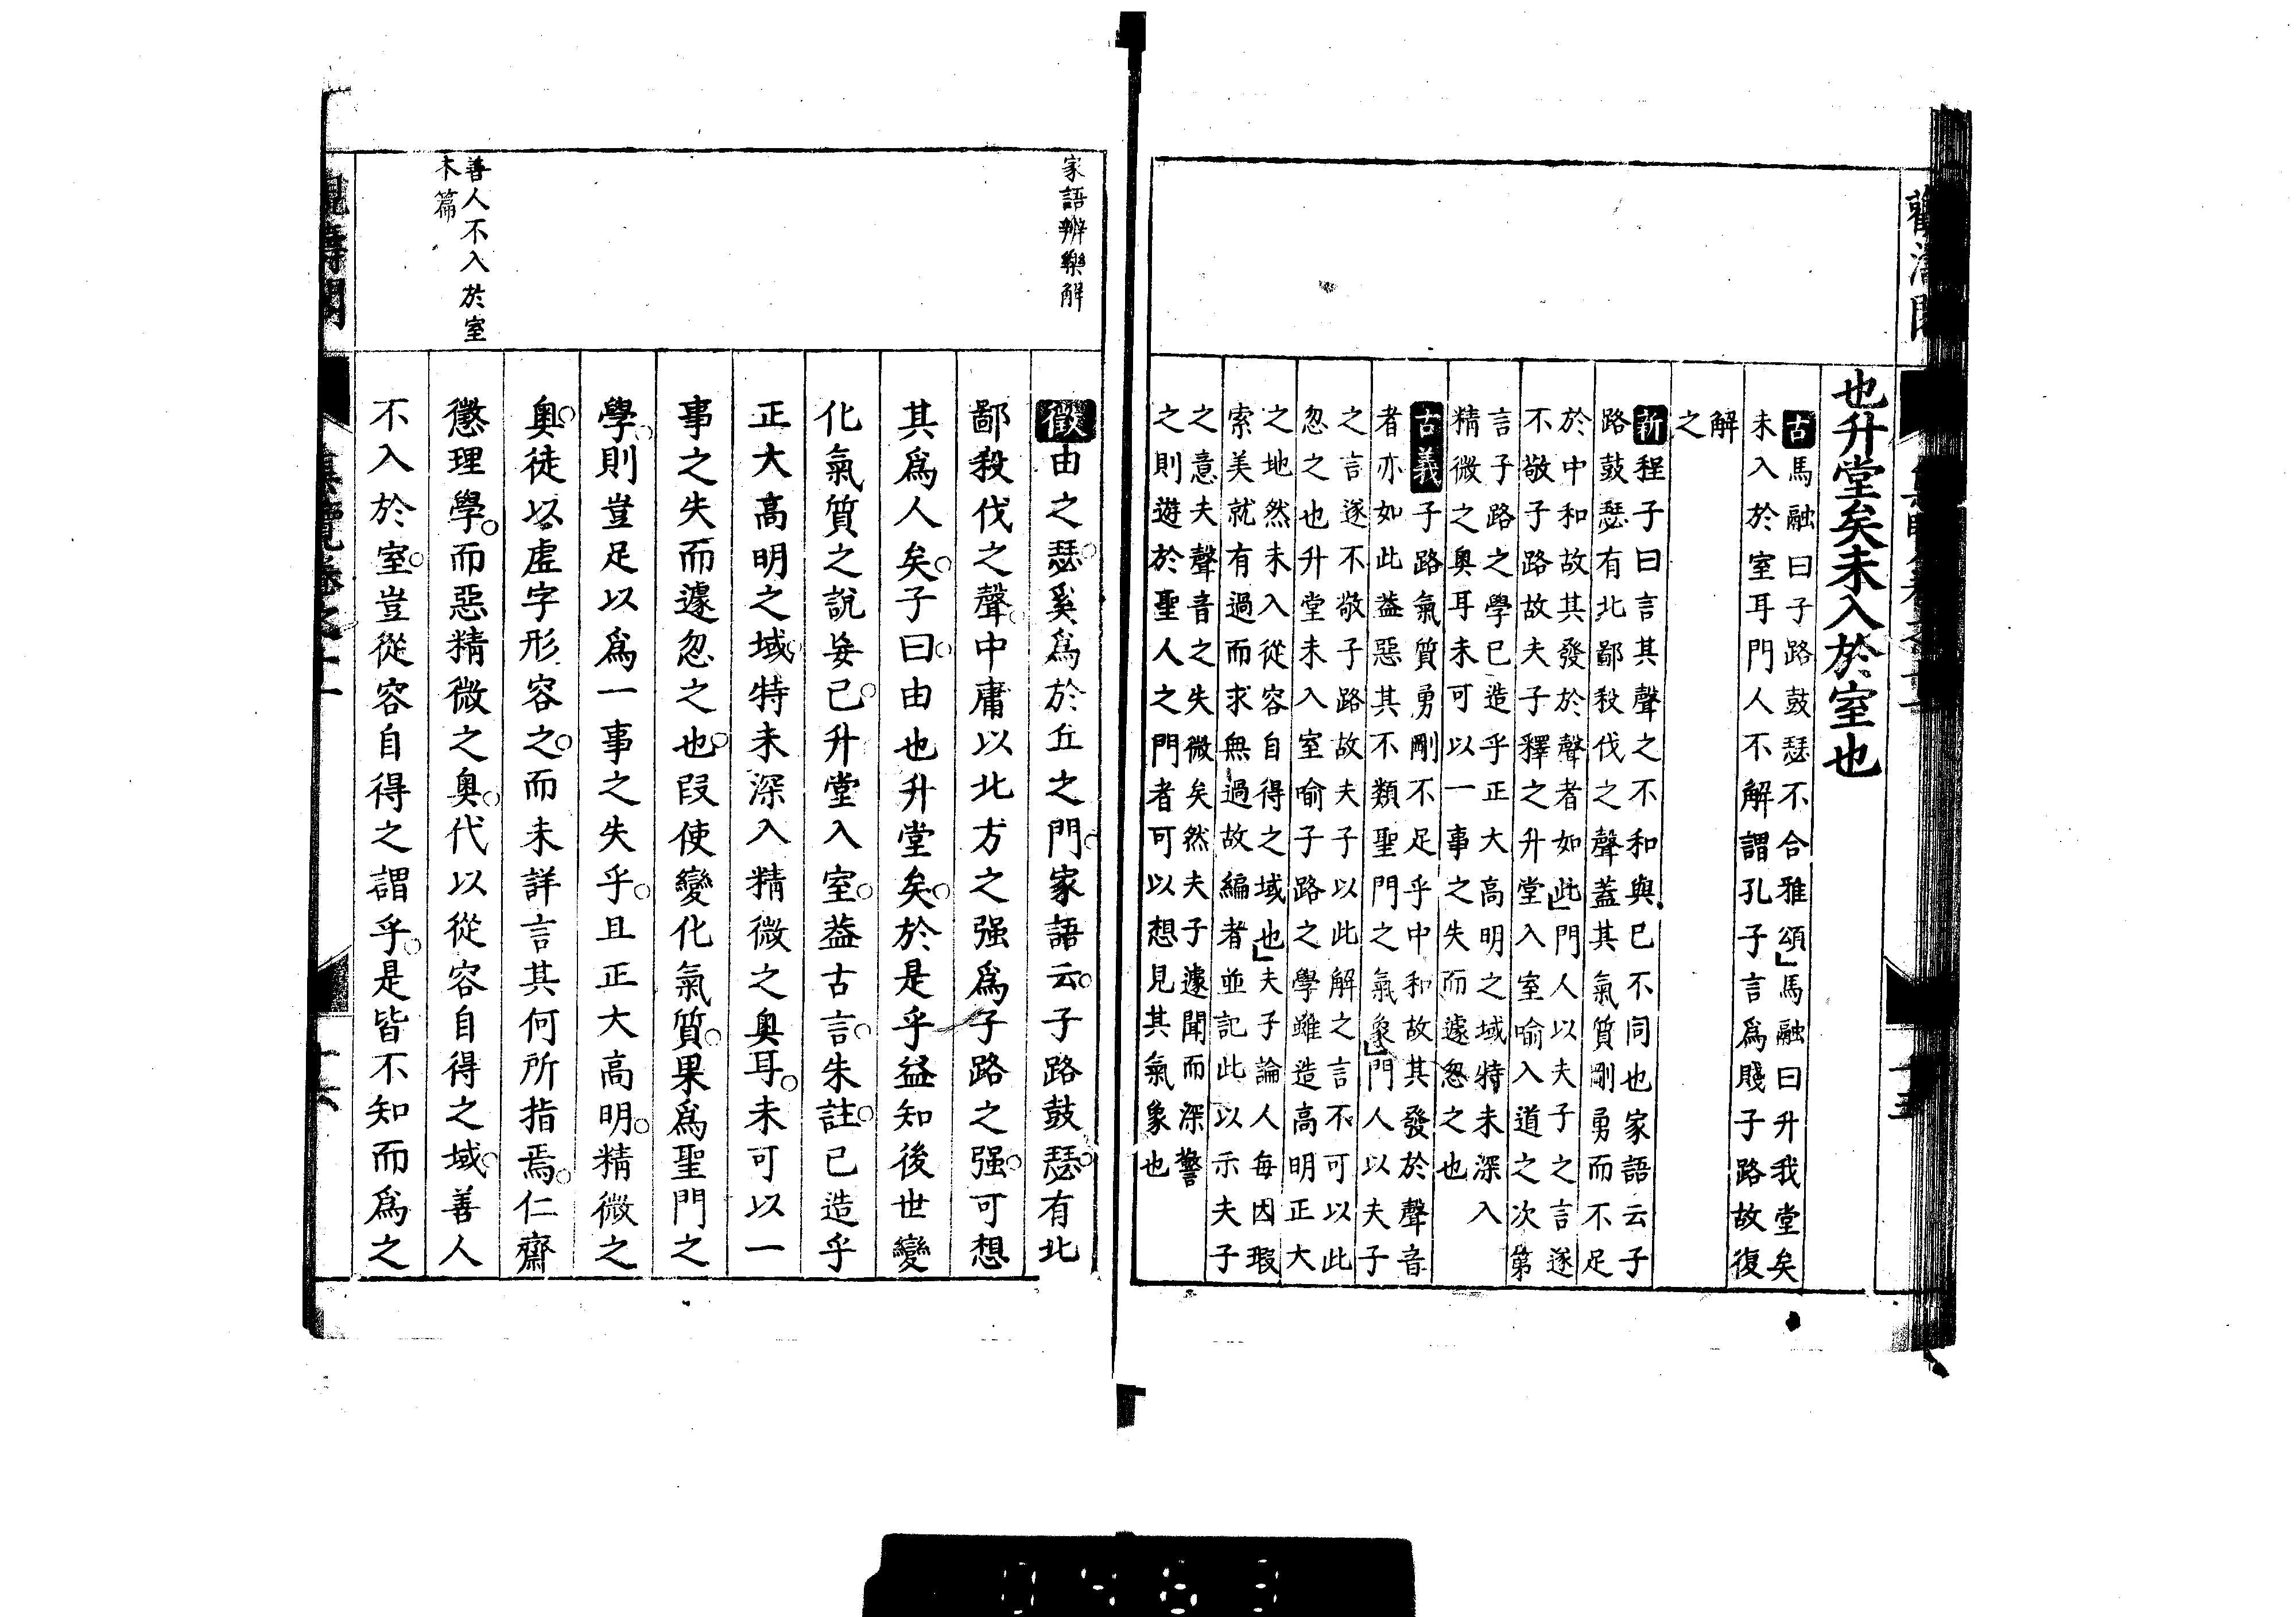 也升堂矣未入於室也
古馬融曰子路鼓瑟不合雅頌」馬融曰升我堂矣
未入於室耳門人不解謂孔子言爲賤子路故復
解
之
新程子曰言其聲之不和與已不同也家語云子
路鼓瑟有北鄙殺伐之聲蓋其氣質剛勇而不足
於中和故其發於聲者如此」門人以夫子之言遂
不敬子路故夫子釋之升堂入室喻入道之次第
言子路之學已造乎正大高明之域特未深入
精微之奥耳未可以一事之失而遽忽之也
古義子路氣質勇剛不足乎中和故其發於聲音
者亦如此蓋惡其不類聖門之氣象」門人以夫子
之言遂不敬子路故夫子以此解之言不可以此
忽之也升堂未入室喻子路之學雖造高明正大
之地然未入從容自得之域也」夫子論人每因瑕
索美就有過而求無過故編者並記此以示夫子
之意夫聲音之失微矣然夫子遽聞而深警
之則遊於聖人之門者可以想見其氣象也
家語辨樂解
徵由之瑟。奚爲於丘之門。家語云。子路鼓瑟。有北
鄙殺伐之聲。中庸以北方之强爲子路之强。可想
其爲人矣。子曰。由也升堂矣。於是乎益知後世變
化氣質之說妄已。升堂入室。蓋古言。朱註。已造乎
正大高明之域。特未深入精微之奥耳。未可以一
事之失而遽忽之也。叚使變化氣質。果爲聖門之
學。則豈足以爲一事之失乎。且正大高明。精微之
奥。徒以虛字形容之。而未詳言其何所指焉。仁齋
懲理學。而惡精微之奥。代以從容自得之域。善人
不入於室。豈從容自得之謂乎。是皆不知而爲之
善人不入於室
木篇